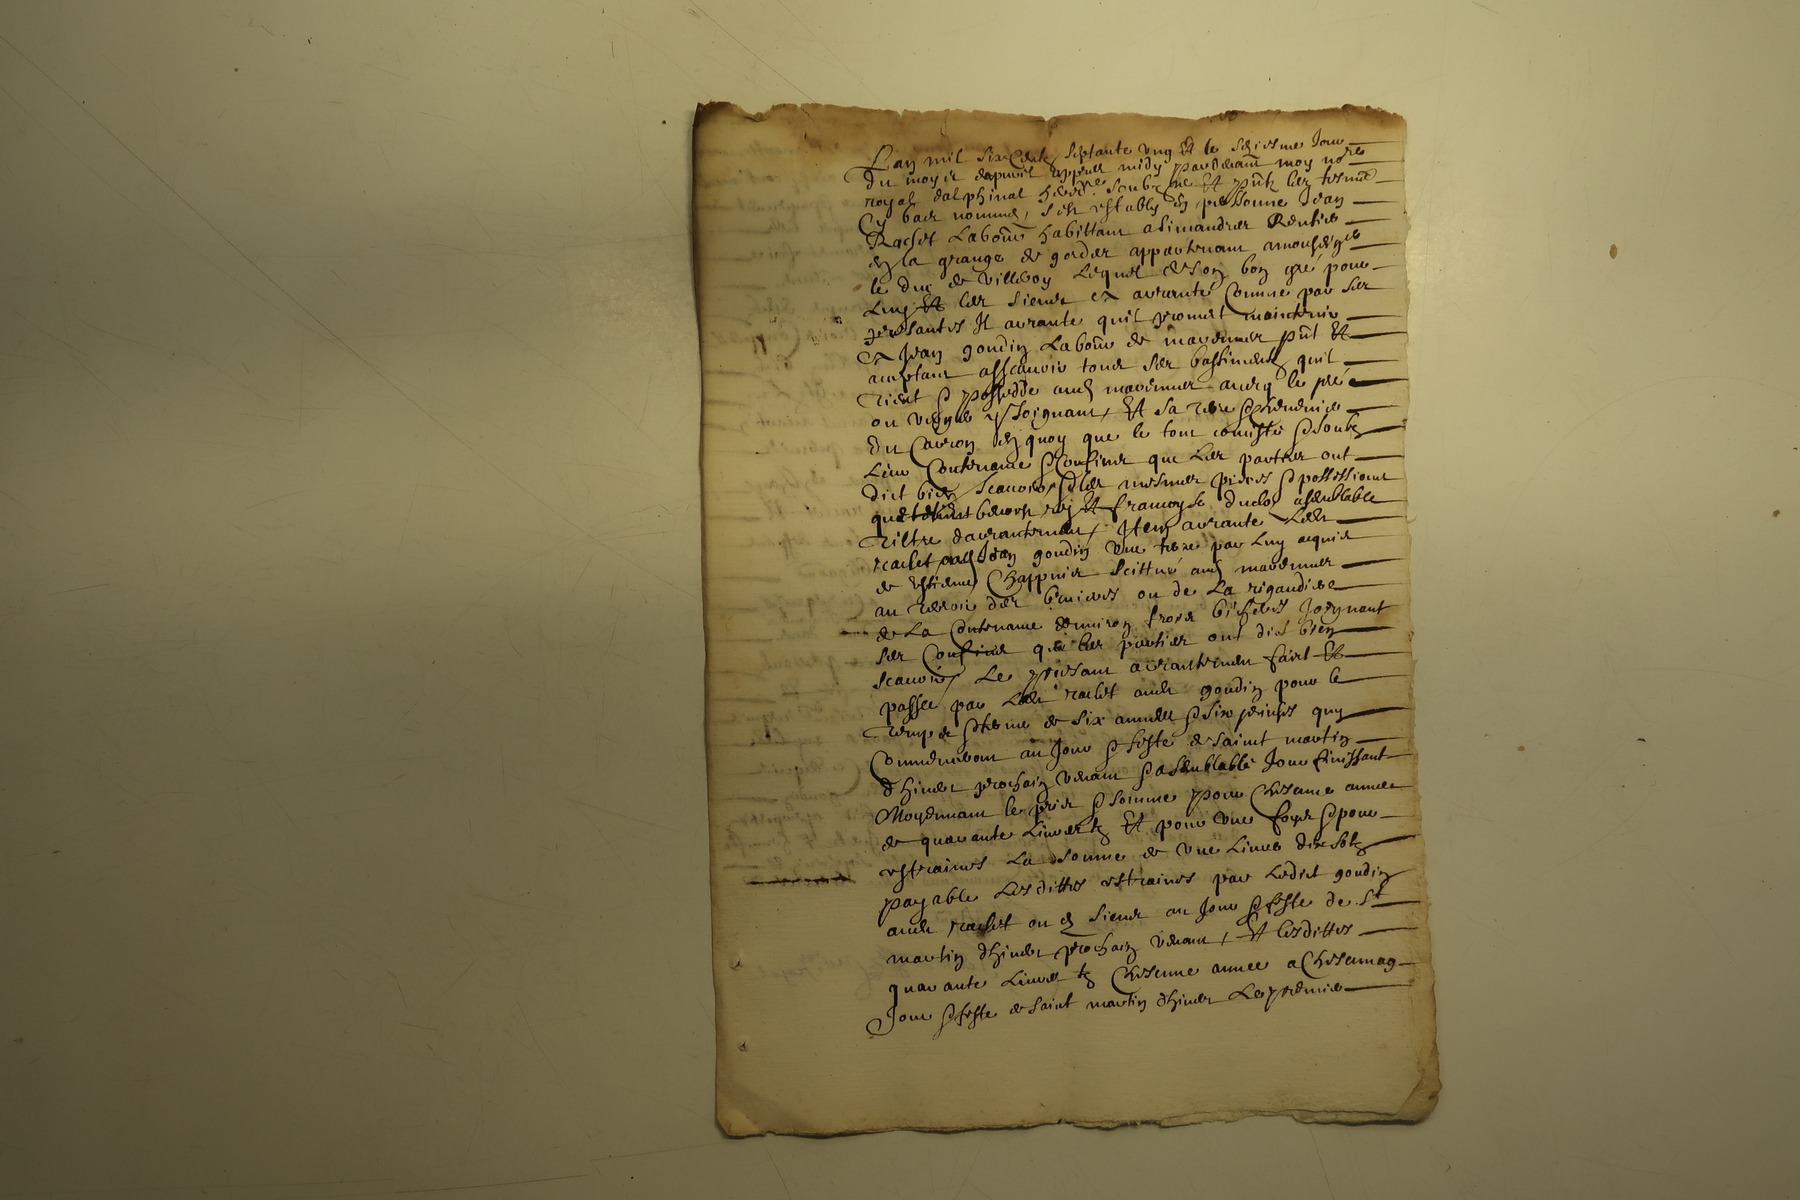 Lan mil six Centz septante ung Et le sesiesme Jour
du moys dapvril appres midy pardevant moy no.re
royal dalphinal hered.re soubz.ne Et pntz les tesmoings
Cy bas nommes, sest estably en personne Jean
Rachet Labour habittant a Simandres Rentier
en la grange de gordes appartenant a monseigr
le duc de villeroy Lequel de son bon gré pour
Luy Et les siens a arranté Comme par ses
presantes Il arrante quil promet maintenir
a Jean goudin Labour de marennes pnt Et
acceptant asscavoir tous ses bastiments quil
tient & possedde aud marennes avecq le pré
ou vergier y Joignant, Et sa terre & cheneviere
du en quoy que le tout consiste & soubz
Leur Contenance & Confins que les parties ont
dict bien scavoir, & les mesmes pieces & possessions
que Et francoyse duclos a semblable
tiltre darrantement, Item arrante Led
rachet aud Jean goudin une terre par Luy acquise
de estienne Chappuis scittué aud marennes
au terroir des bruieres ou de La rigaudiere
de La Contenance denviron trois bicherees Joignant
ses Confins que les parties ont dict bien
scavoir, Le presant arrantement faict Et
passé par Led rachet aud goudin pour le
temps & terme de six annees & six prinses quy
Commenceront au Jour & feste de saint martin
dhiver prochain venant & a semblable Jour finissant
Moyennant le prix & somme pour Chescune annee
de quarante Livres tz Et pour une foys & pour
estraines La somme de une Livre dix solz
payable Lesdittes estraines par Ledict goudin
aud rachet ou es siens au Jour & feste de St
martin dhiver prochain venant, Et lesdittes
quarante Livres tz Chescune annee a Chescung
Jour & feste de saint martin dhiver Le premier